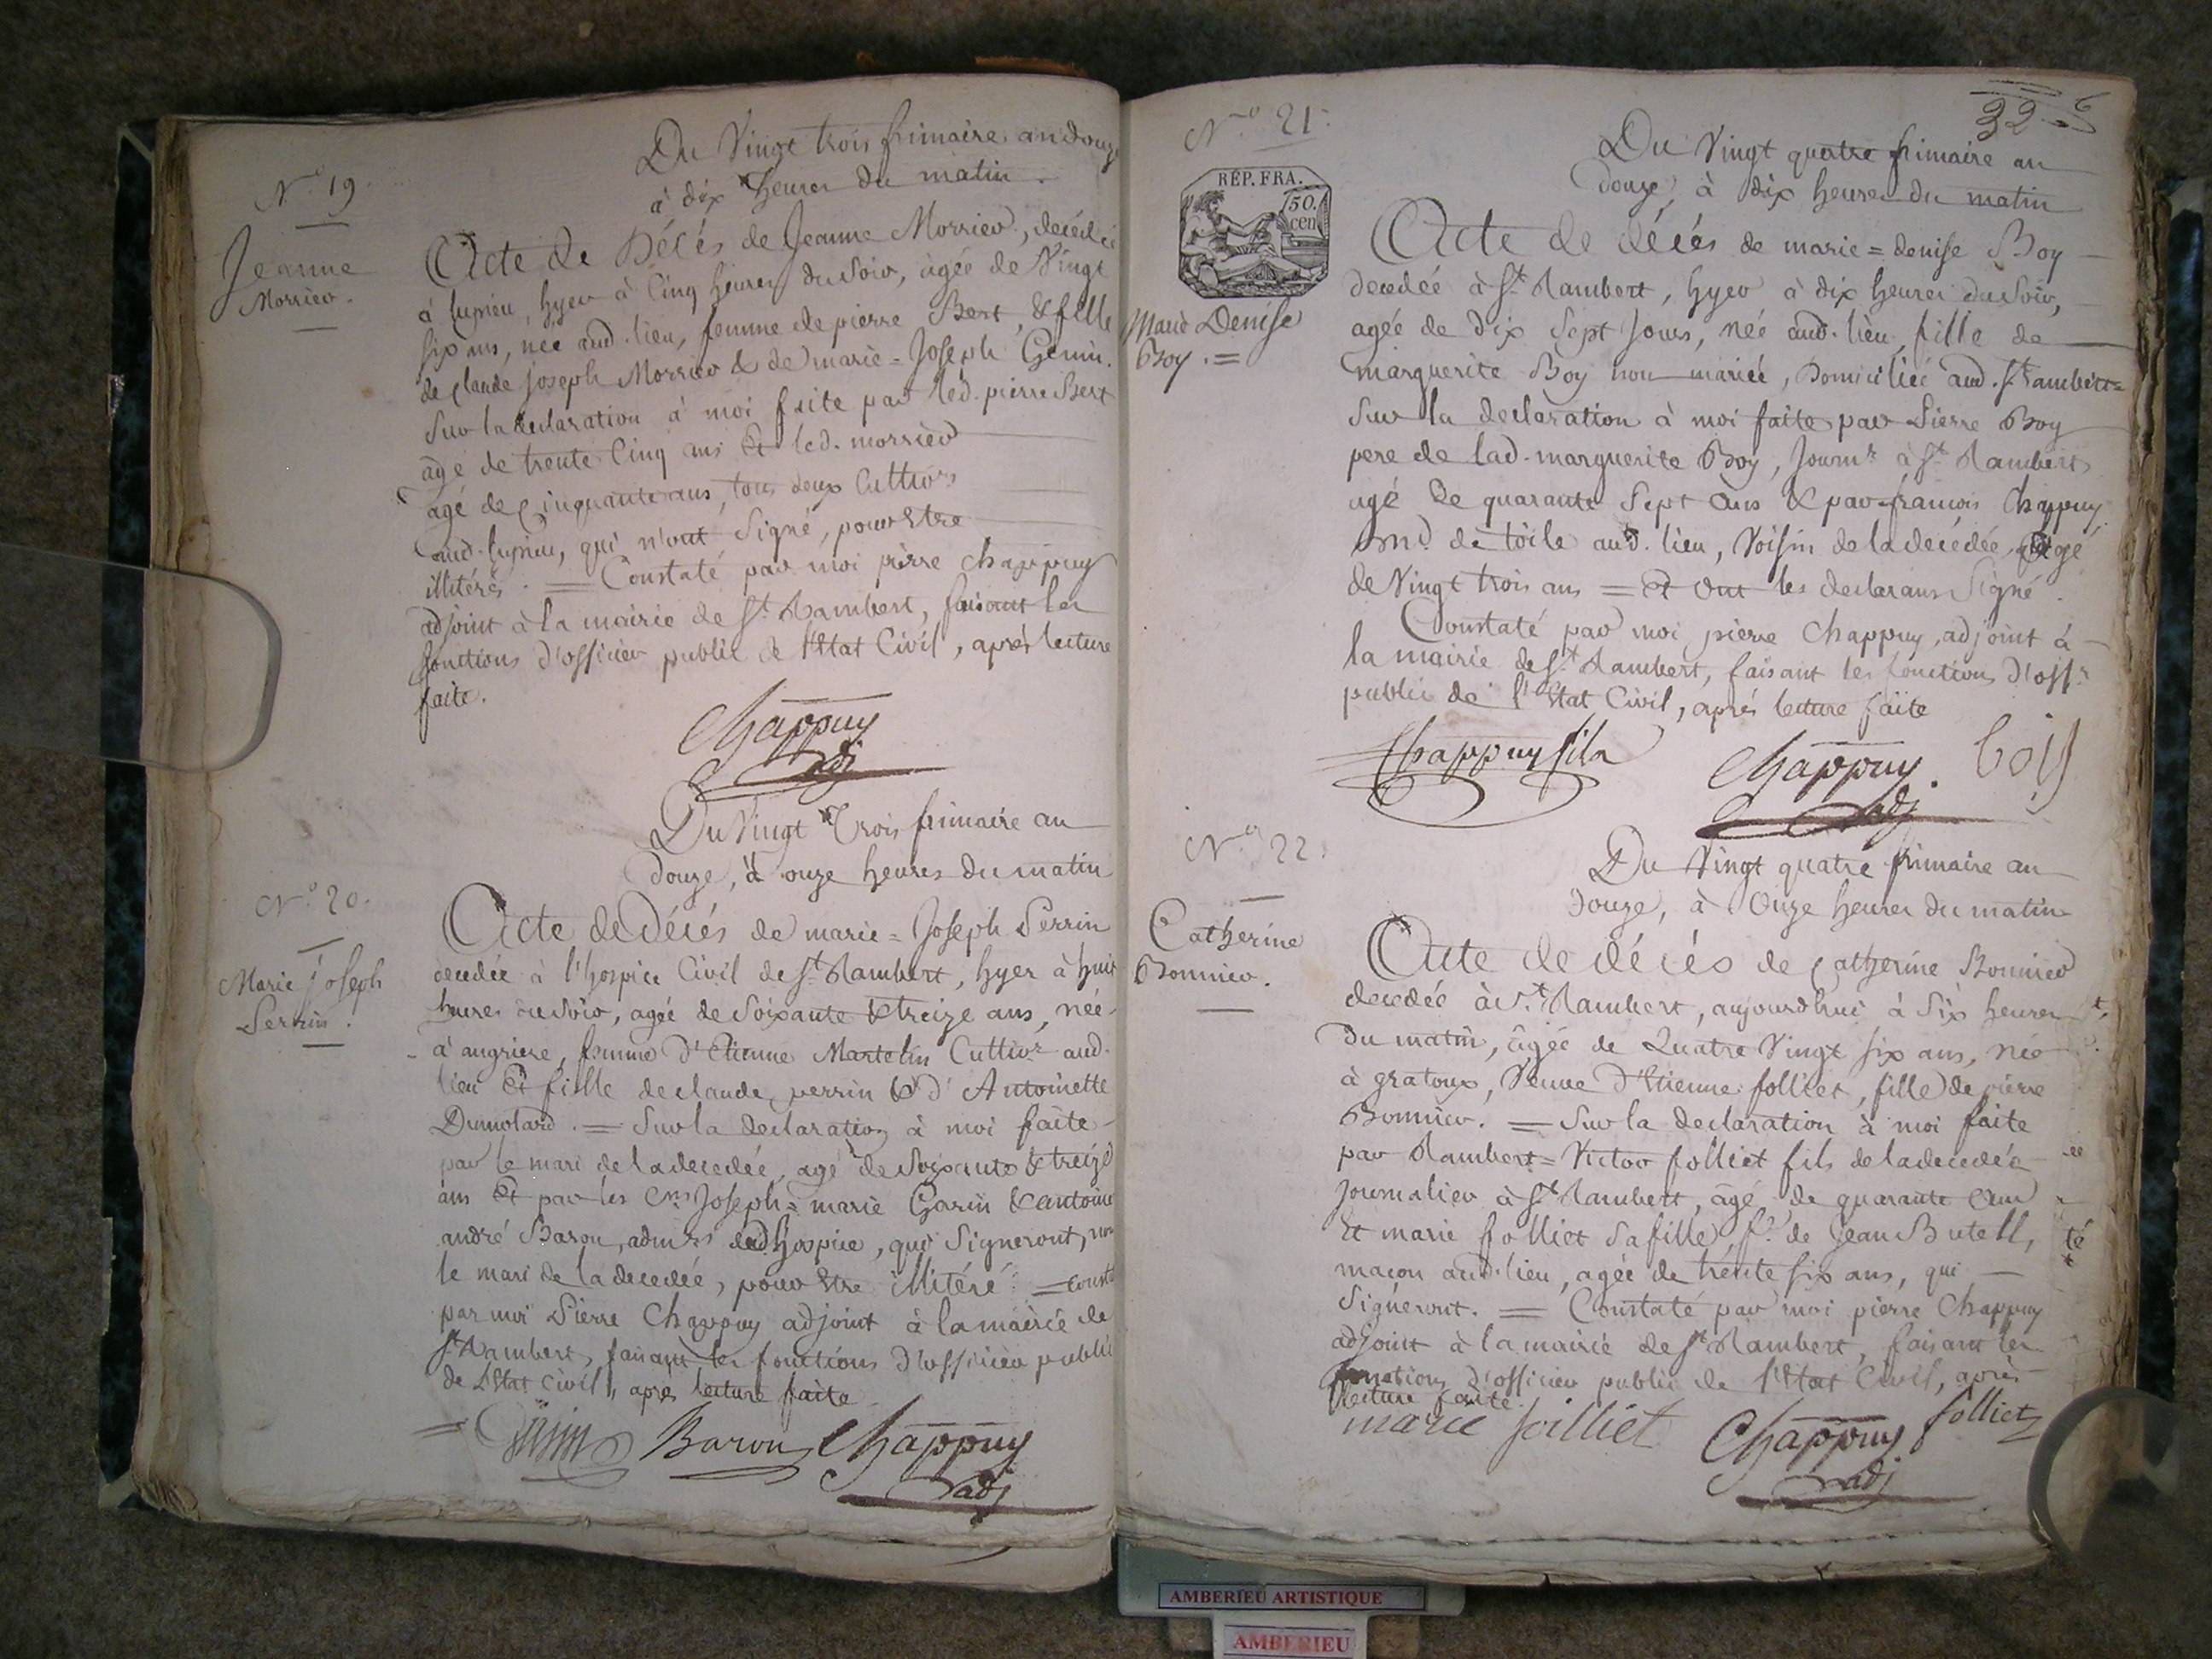 N.o 19.
Jeanne
Morrier.
Du Vingt trois frimaire an douze
à dix heures du matin.
Acte de Décés de Jeanne Morrier, décédée
à lupieu, hyer à Cinq heures du Soir, àgée de Vingt
six ans, née aud. lieu, femme de pierre Bert, & fille
de Claude joseph Morrier & de marie = Joseph Genin.
Sur la declaration à moi faite par led. pierre Bert
âgé de trente Cinq ans Et led. morrier
agé de Cinquante ans, tous deux Cultiv.rs
aud. lupieu, qui n'ont Signé, pour Etre
illitérés. = Constaté par moi pierre Chappuy
adjoint à la mairie de S.t Rambert, faisant les
fonctions d'officier public de l'Etat Civil, après lecture
faite.
Chappuy
adj
N.o 20.
Marie joseph
Perrin.
Du Vingt Trois frimaire an
douze, à onze heures du matin
Acte de Décés de marie = Joseph Perrin
decedée à l'hospice Civil de S.t Rambert, hyer à huit
heures du Soir, agée de Soixante & treize ans, née
à angriere, femme d'Etienne Martelin Cultiv.r aud.
lieu Et fille de claude perrin & d'Antoinette
Dumolard. = Sur la declaration à moi faite
par le mari de la decedée, agé de Soixante & treize
ans Et par les C.ns Joseph = marie Garin & antoine
andré Baron, adm.rs dud hospice, qui Signeront, non
le mari de la decedée, pour Etre illitéré = Consta
par moi Pierre Chappuy adjoint à la mairie de
S.t Rambert, faisant les fonctions d'officier public
de l'Etat Civil, après lecture faite
Baron Chappuy
adj
32
6
N.o 21.
RÉP. FRA.
50.
cen
Marie Denise
Boy. =
Du Vingt quatre frimaire an
douze, à dix heures du matin
Acte de décés de marie = denise Boy
decedée à S.t Rambert, hyer à dix heures du Soir,
agée de dix Sept Jours, née aud. lieu, fille de
marguerite Boy non mariée, Domiciliée aud. S.t Rambert =
Sur la declaration à moi faite par Pierre Boy
pere de lad. marguerite Boy, Journ.r à S.t Rambert
agé de quarante Sept ans & par françois Chappuy
m.d de toile aud. lieu, Voisin de la decédée, agé
de Vingt trois ans = Et Ont les declarans Signé.
Constaté par moi pierre Chappuy, adjoint à
la mairie de S.t Rambert, faisant les fonctions d'off.r
public de l'Etat Civil, après lecture faite
Chappuy fils Chappuy boy
adj
N.o 22.
Catherine
Bonnier.
Du Vingt quatre frimaire an
douze, à Onze heures du matin
Acte de décés de Catherine Bonnier
decedée à S.t Rambert, aujourdhui à Six heures
du matin, âgée de Quatre Vingt six ans, née
à gratoux, Veuve d'Etienne folliet, fille de pierre
Bonnier. = Sur la declaration à moi faite
par Rambert = Victor folliet fils de la decedée
Journalier à S.t Rambert, âgé de quarante ans
Et marie folliet sa fille f.e de Jean Butell,
maçon aud. lieu, agée de trente six ans, qui
Signeront. = Constaté par moi pierre Chappuy
adjoint à la mairie de S.t Rambert, faisant les
fonctions d'officier public de l'Etat Civil, après
lecture faite.
marie foilliet Chappuy folliet
adj
AMBERIEU ARTISTIQUE
AMBERIEU